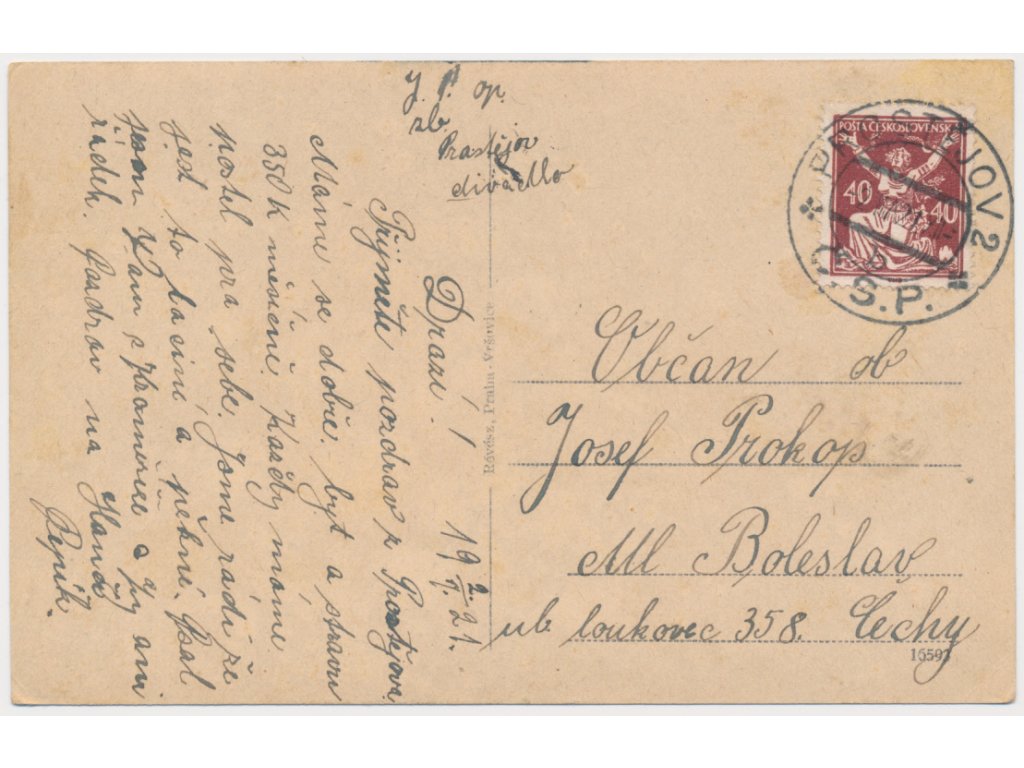 J. P. op.
zb.
Prastějov
divadlo
Drazí! 19 2/V. 21.
Přijměte pozdrav z Prostějova
Máme se dobře. byt a stravu
350 K měsíčně. Každý máme
postel pro sebe. Jsme rádi že
jest to laciní a pěkní. Psal
jsem Vám z a Vy ani
řádek. Nazdar na Hané
Pepík.
Révész, Praha-Vršovice
POŠTA ČESKOSLOVENSKÁ
40 40
PROSTĚJOV 2
Č.S.P.
Občan ob
Josef Prokop
Ml Boleslav
ub loukovec 358. Čechy
16593